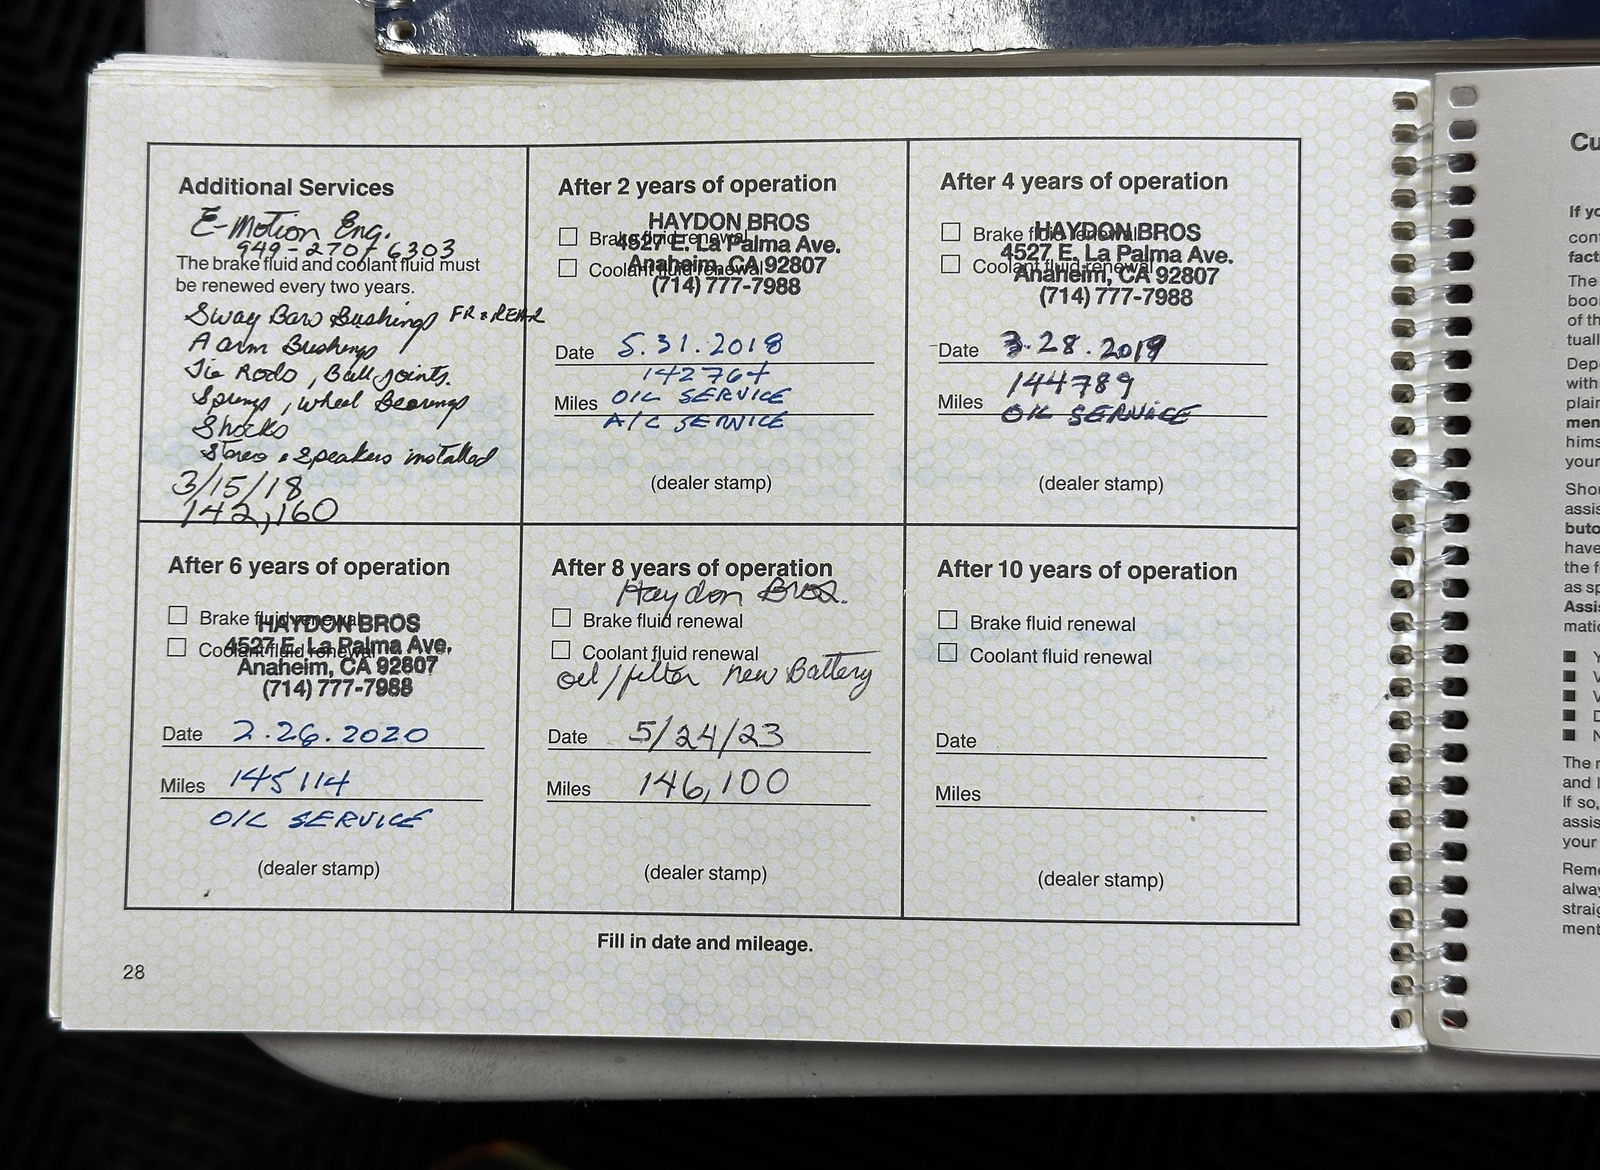 Additional Services
E-Motion Eng.
949-270-6303
The brake fluid and coolant fluid must
be renewed every two years.
Sway Baw Bushings FR & REAR
A arm Bushings
Tie Rods, Ball joints.
Springs, Wheel Bearings
Shocks
Stereo & Speakers installed
3/15/18
142,160
After 2 years of operation
HAYDON BROS
Brake fluid renewal
4527 E. La Palma Ave.
Coolant fluid renewal
Anaheim, CA 92807
(714) 777-7988
Date 5.31.2018
142764
Miles OIL SERVICE
A/C SERVICE
(dealer stamp)
After 4 years of operation
HAYDON BROS
Brake fluid renewal
4527 E. La Palma Ave.
Coolant fluid renewal
Anaheim, CA 92807
(714) 777-7988
Date 3.28.2019
144789
Miles OIL SERVICE
(dealer stamp)
After 6 years of operation
Brake fluid renewal
HAYDON BROS
4527 E. La Palma Ave.
Coolant fluid renewal
Anaheim, CA 92807
(714) 777-7988
Date 2.26.2020
Miles 145114
OIL SERVICE
(dealer stamp)
After 8 years of operation
Haydon Bros.
Brake fluid renewal
Coolant fluid renewal
oil/filter new Battery
Date 5/24/23
Miles 146,100
(dealer stamp)
After 10 years of operation
Brake fluid renewal
Coolant fluid renewal
Date
Miles
(dealer stamp)
Fill in date and mileage.
28
Cu
If yo
cont
facti
The
book
of th
tuall
Depe
with
plain
men
hims
your
Shou
assis
buto
have
the f
as sp
Assi
matic
The r
and I
If so,
assis
your
Reme
alway
straig
ment